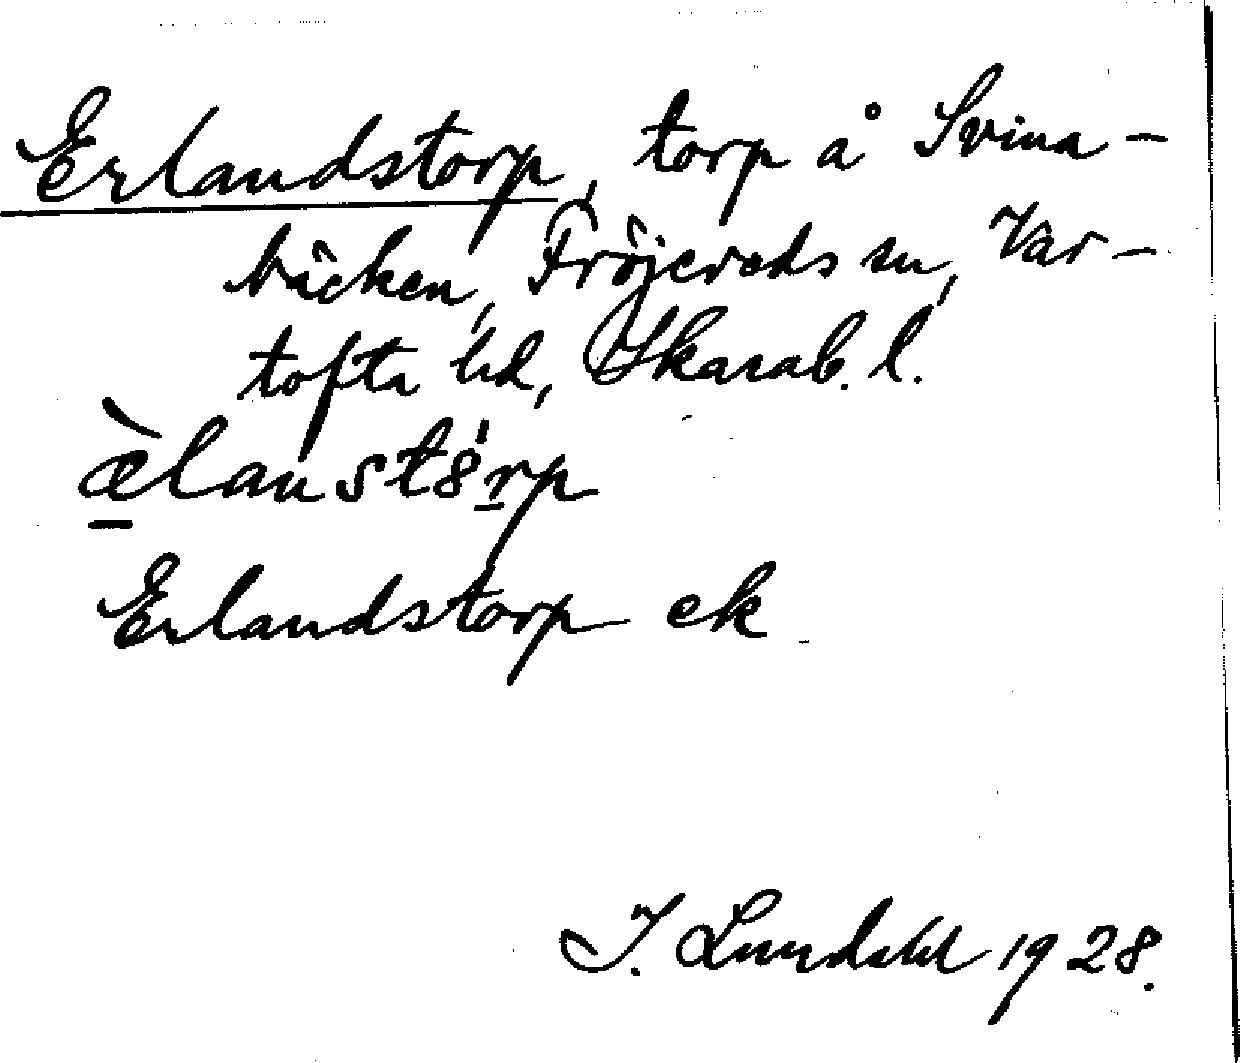 Erlandstorp, torp å Svina-
bäcken, Fröjereds sn, Var-
tofta hd, Skarab. l.
æ̀lanstórp
Erlandstorp ek
I. Lundahl 1928.